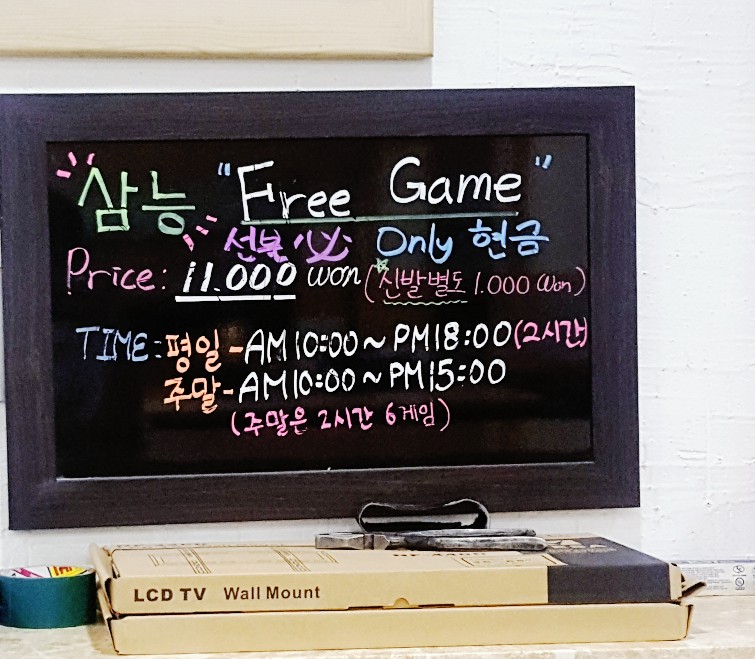 삼능 "Free Game"
선불 必 Only 현금
Price: 11.000 won (신발별도 1.000 won)
TIME: 평일 - AM 10:00 ~ PM 18:00 (2시간)
주말 - AM 10:00 ~ PM 15:00
(주말은 2시간 6게임)
LCD TV Wall Mount